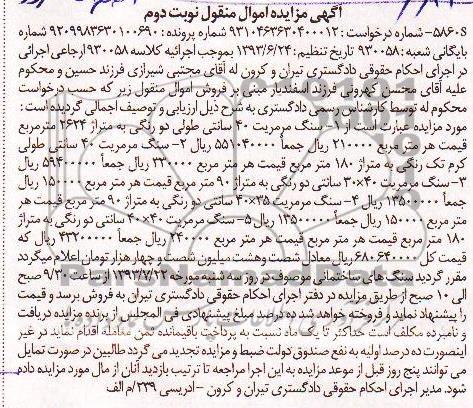 آگهی مزایده اموال منقول نوبت دوم
۵۸۶۰۵- شماره درخواست: ۹۳۱۰۴۶۳۶۳۰۴۰۰۰۱۲ شماره پرونده: ۹۲۰۹۹۸۳۶۳۰۱۰۰۶۹۰ شماره
بایگانی شعبه: ۹۳۰۰۵۸ تاریخ تنظیم: ۱۳۹۳/۶/۲۴ بموجب اجرائیه کلاسه ۹۳۰۰۵۸ ارجاعی اجرائی
در اجرای احکام حقوقی دادگستری تیران و کرون له آقای مجتبی شیرازی فرزند حسین و محکوم
علیه آقای محسن کهرونی فرزند اسفندیار مبنی بر فروش اموال منقول زیر که حسب درخواست
محکوم له توسط کارشناس رسمی دادگستری به شرح ذیل ارزیابی و توصیف اجمالی گردیده است:
مورد مزایده عبارت است از ۱- سنگ مرمریت ۴۰ سانتی طولی دو رنگی به متراژ ۲۶۲۴ مترمربع
قیمت هر متر مربع ۲۱۰۰۰۰ ریال جمعاً ۵۵۱۰۴۰۰۰۰ ریال ۲- سنگ مرمریت ۴۰ سانتی طولی
کرم تک رنگی به متراژ ۱۸۰ متر مربع قیمت هر متر مربع ۳۳۰۰۰۰ ریال جمعاً ۵۹۴۰۰۰۰۰ ریال
۳- سنگ مرمریت ۴۰×۳۰ سانتی دو رنگی به متراژ ۹۰ متر مربع قیمت هر متر مربع ۱۵۰۰۰۰ ریال
جمعاً ۱۳۵۰۰۰۰۰ ریال ۴- سنگ مرمریت ۳۵×۴۰ سانتی دو رنگی به متراژ ۹۰ متر مربع قیمت هر
متر مربع ۱۵۰۰۰۰ ریال جمعاً ۱۳۵۰۰۰۰۰ ریال ۵- سنگ مرمریت ۴۰×۴۰ سانتی دو رنگی به متراژ
۱۸۰ متر مربع قیمت هر متر مربع قیمت هر متر مربع ۲۴۰۰۰۰ ریال جمعاً ۴۳۲۰۰۰۰۰ ریال که
قیمت کل ۶۸۰۶۴۰۰۰۰ ریال معادل شصت و هشت میلیون شصت و چهار هزار تومان اعلام میگردد
مقرر گردید سنگ های ساختمانی موصوف در روز سه شنبه مورخه ۱۳۹۳/۷/۲۲ از ساعت ۹/۳۰ صبح
الی ۱۰ صبح از طریق مزایده در دفتر اجرای احکام حقوقی دادگستری تیران به فروش برسد و قیمت
را پیشنهاد نماید و فروخته خواهد شد ده درصد مبلغ پیشنهادی فی المجلس از برنده مزایده دریافت
و نامبرده مکلف است حداکثر تا یک ماه نسبت به پرداخت باقیمانده ثمن معامله اقدام نماید در غیر
اینصورت ده درصد اولیه به نفع صندوق دولت ضبط و مزایده تجدید می گردد طالبین در صورت تمایل
می توانند پنج روز قبل از موعد مزایده به این اجرا مراجعه تا ترتیب بازدید آنان از مال مورد مزایده داده
شود. مدیر اجرای احکام حقوقی دادگستری تیران و کرون - ادریسی ۲۳۹/م الف
ParsNamadData